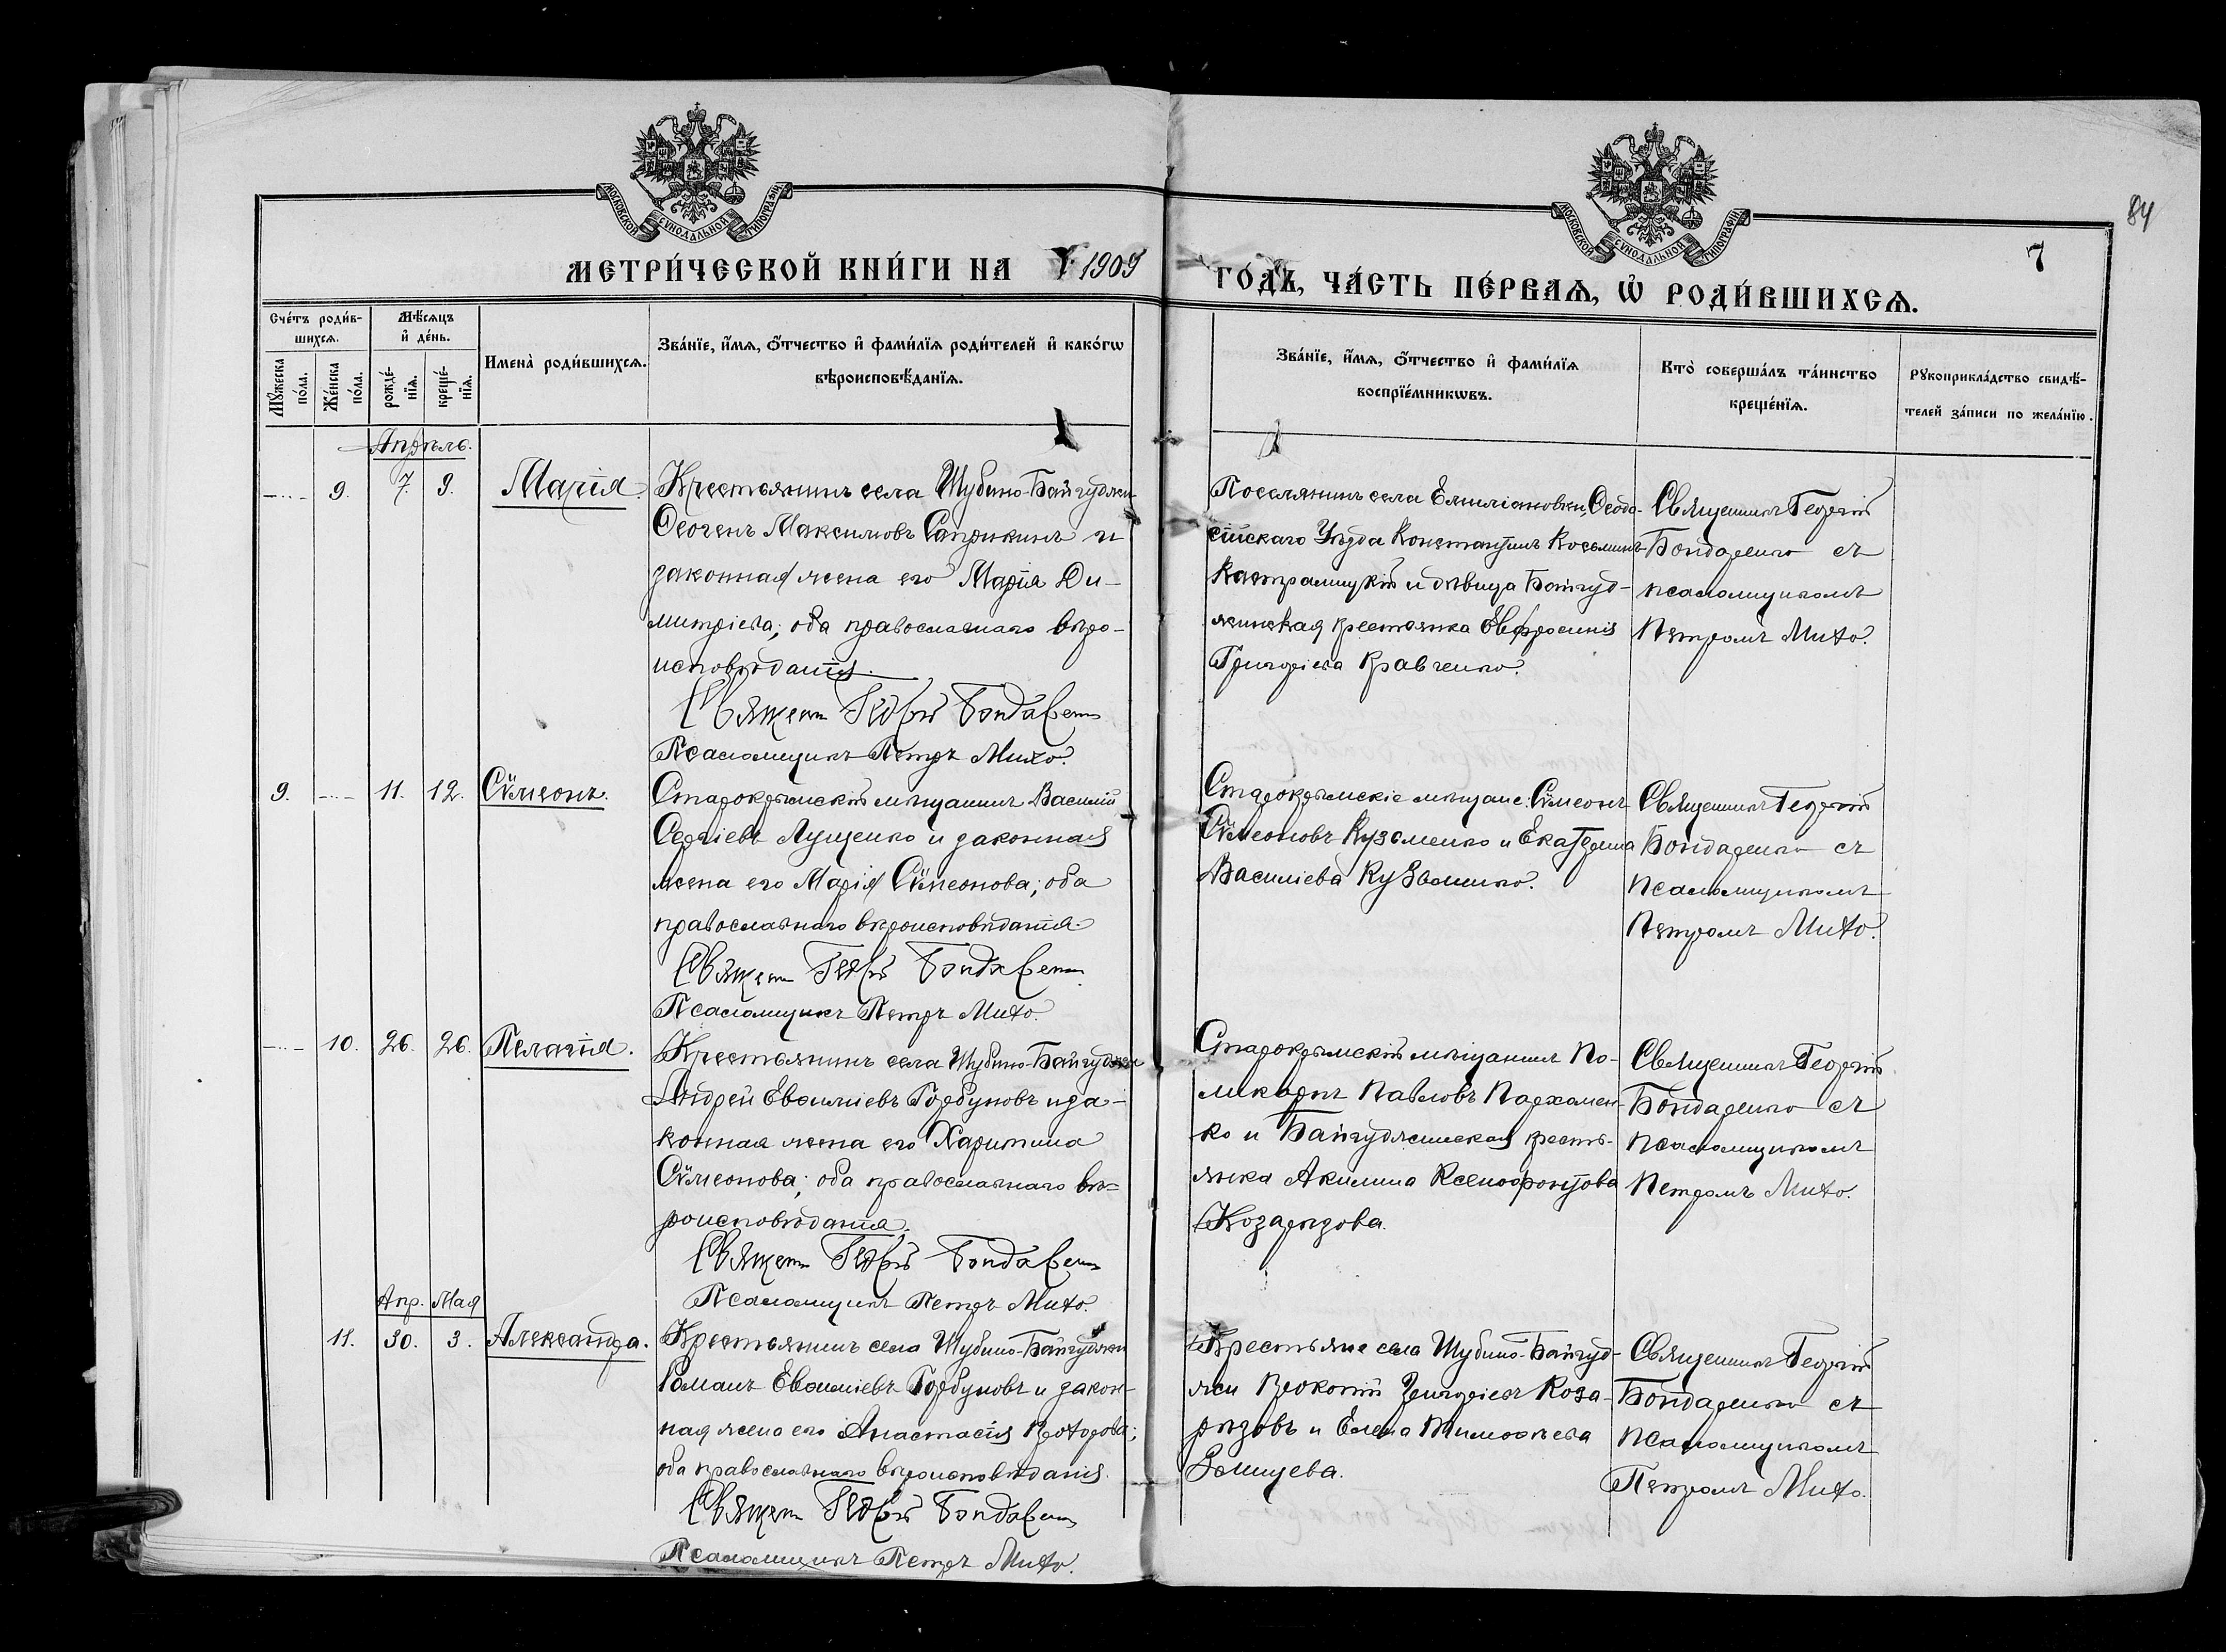 МОСКОВСКОЙ СѴНОДАЛЬНОЙ ТИПОГРАФІИ
МОСКОВСКОЙ СѴНОДАЛЬНОЙ ТИПОГРАФІИ
84
7
МЕТРИ́ЧЕСКОЙ КНИ́ГИ НА 1909
ГО́ДЪ, ЧА́СТЬ ПЕ́РВАѦ, Ѡ҆ РОДИ́ВШИХСѦ.
Сче́тъ роди́в-
шихсѧ.
Мꙋ́жеска по́ла.
Же́нска по́ла.
Мѣ́сѧцъ
и҆ де́нь.
рожде́-
нїѧ.
креще́-
нїѧ.
Имена̀ роди́вшихсѧ.
Зва́нїе, и҆́мѧ, ѻ҆́тчество и҆ фами́лїѧ роди́телей и҆ како́гѡ
вѣроисповѣ́данїѧ.
Зва́нїе, и҆́мѧ, ѻ҆́тчество и҆ фами́лїѧ
воспрїе́мникѡвъ.
Кто̀ соверша́лъ та́инство
креще́нїѧ.
Рꙋкоприкла́дство свидѣ́-
телей за́писи по жела́нїю.
Апрѣль.
9. 7. 9. Марія.
Крестьянинъ села Шубино-Байгуджи
Ѳеогенъ Максимовъ Сапрыкинъ и
законная жена его Марія Ди-
митріева; оба православнаго вѣро-
исповѣданія.
Священ. Георгій Бондаренко
Псаломщикъ Петръ Михо.
Поселянинъ села Емиліановки, Ѳеодо-
сійскаго Уѣзда Константинъ Косьминъ
и дѣвица Байгуд-
жинская крестьянка Евфросинія
Григоріева Кравченко.
Священникъ Георгій
Бондаренко съ
псаломщикомъ
Петромъ Михо.
9. 11. 12. Сѵмеонъ.
Старокрымскій мѣщанинъ Василій
Сергіевъ Лущенко и законная
жена его Марія Сѵмеонова; оба
православнаго вѣроисповѣданія.
Священ. Георгій Бондаренко
Псаломщикъ Петръ Михо.
Старокрымскіе мѣщане: Сѵмеонъ
Сѵмеоновъ Кузьменко и Екатерина
Василіева Кузьменко.
Священникъ Георгій
Бондаренко съ
псаломщикомъ
Петромъ Михо.
10. 26. 26. Пелагія.
Крестьянинъ села Шубино-Байгуджи
Андрей Евсиміевъ Горбуновъ и за-
конная жена его Харитина
Сѵмеонова; оба православнаго вѣ-
роисповѣданія.
Священ. Георгій Бондаренко
Псаломщикъ Петръ Михо.
Старокрымскій мѣщанинъ По-
ликарпъ Павловъ Пархомен-
ко и Байгуджинская кресть-
янка Акилина Ксенофонтова
Козарѣзова.
Священникъ Георгій
Бондаренко съ
псаломщикомъ
Петромъ Михо.
Апр. Мая
11. 30. 3. Александра.
Крестьянинъ села Шубино-Байгуджи
Романъ Евсиміевъ Горбуновъ и закон-
ная жена его Анастасія
оба православнаго вѣроисповѣданія.
Священ. Георгій Бондаренко
Псаломщикъ Петръ Михо.
Крестьяне села Шубино-Байгуд-
жи Прокопій Григоріевъ Коза-
рѣзовъ и Елена Тимоѳеева
Священникъ Георгій
Бондаренко съ
псаломщикомъ
Петромъ Михо.